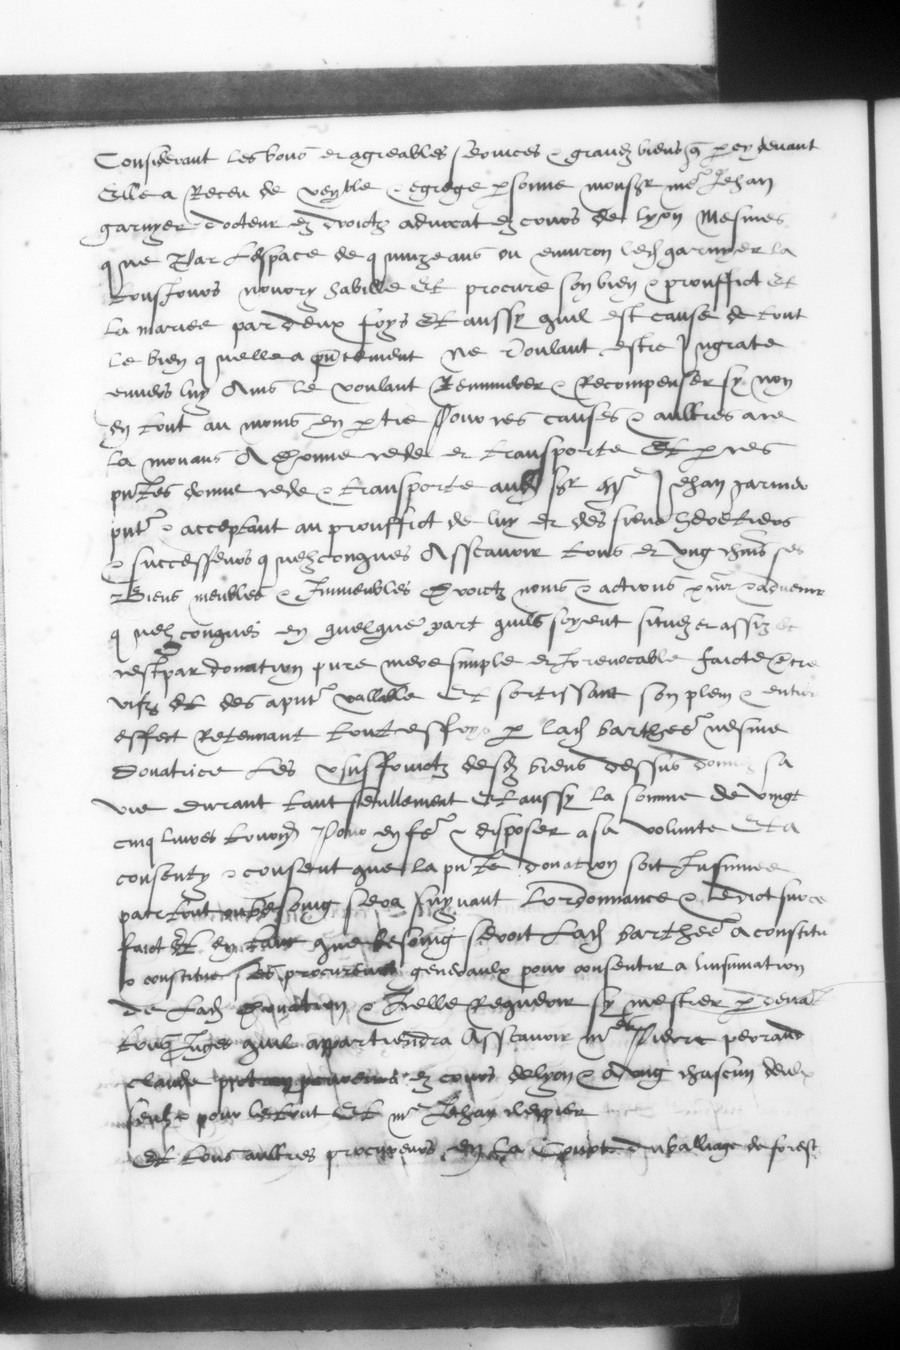 Considerant les bons et agreables services & grandz biens q par cy devant
Elle a Receu de venble & egrege psonne monsr me Jehan
garnyer docteur ez droictz advocat ez cours de lyon Mesmes
que Par Lespace de quinze ans ou environ ledt garnyer la
tousjours nourry habille Et procure son bien & prouffict Et
la mariee par deux foys Et aussy quil est cause de tout
le bien quelle a pntement Ne Voulant estre Ingrate
envers luy Ains le voulant Remunerer & Recompenser sy non
En tout au moins En ptie Pour ces causes & aultres a ce
la movans A Donne cede et transporte Et p ces
pntes donne cede & transporte audt sr me Jehan garnier
pnt & acceptant au prouffict de luy et des siens heretiers
& successeurs quelzconques Asscavoir tous et ungs chuns ses
Biens meubles & Immeubles Droictz noms & actions pnts & advenir
quelzconques En quelque part quilz soyent situez et assiz et
cest par donation pure mere simple et Irrevocable faicte Entre
vifz et des apnt vallable Et sortissant son plein & entier
effect Retennant touteffoys p ladt barthee mesme
Donatrice Les Usuffruictz desdz biens dessus donnez sa
vie durant tant seullement Et aussy la somme de vingt
cinq livres tournoys Pour en fe & disposer a sa volunte Et a
consenty & consent que la pnte donation soit Insinuee
partout ou besoing sera suyvant Lordonnance & Ledict sur ce
faict Et En tant que besoing seroit Ladt barthee a constitue
& constitue ses procureurs generaulx pour consentir a linsinuation
de Ladt Donation & Icelle Requerir sy mestier p devant
tous Juges quil appartiendra Asscavoir me Pierre
Claude procureurs ez cours de lyon & Dung chascun deulx
seul & pour le tout Et me Jehan
Et tous aultres procureurs En La Court du balliage de forest